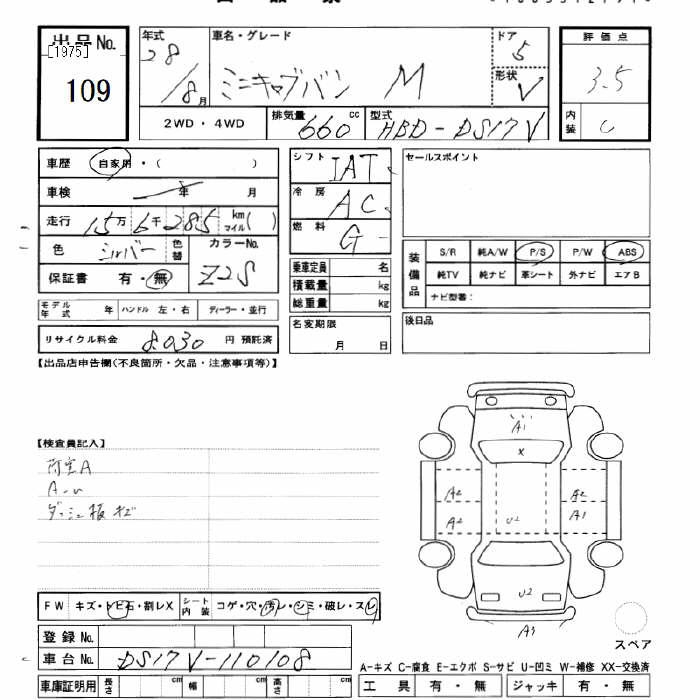 出品No. 年式 車名・グレード ドア 評価点
[1975] 28 ミニキャブバン M 5 3.5
109 /8月 形状 V
2WD・4WD 排気量 660 cc 型式 HBD-DS17V 内装 C
車歴 自家用・( ) シフト IAT セールスポイント
車検 年 月 冷房 AC
走行 15万6千285 km マイル( ) 燃料 G
色 シルバー 色替 カラーNo. Z2S 装備品 S/R 純A/W P/S P/W ABS
保証書 有・無 乗車定員 名 純TV 純ナビ 革シート 外ナビ エアB
積載量 kg ナビ型番:
モデル年式 ハンドル 左・右 ディーラー・並行 総重量 kg
リサイクル料金 8,030 円 預託済 名変期限 月 日 後日品
【出品店申告欄(不良箇所・欠品・注意事項等)】
A1
X
【検査員記入】
荷室A
A-U
ダッシュ板キズ
A2 A2
A2 U2 A1
U2
A3
FW キズ・トビ石・割レX シート内装 コゲ・穴・汚レ・シミ・破レ・スレ
スペア
登録No.
車台No. DS17V-110108
A-キズ C-腐食 E-エクボ S-サビ U-凹ミ W-補修 XX-交換済
車庫証明用 長さ cm 幅 cm 高さ cm 工具 有・無 ジャッキ 有・無